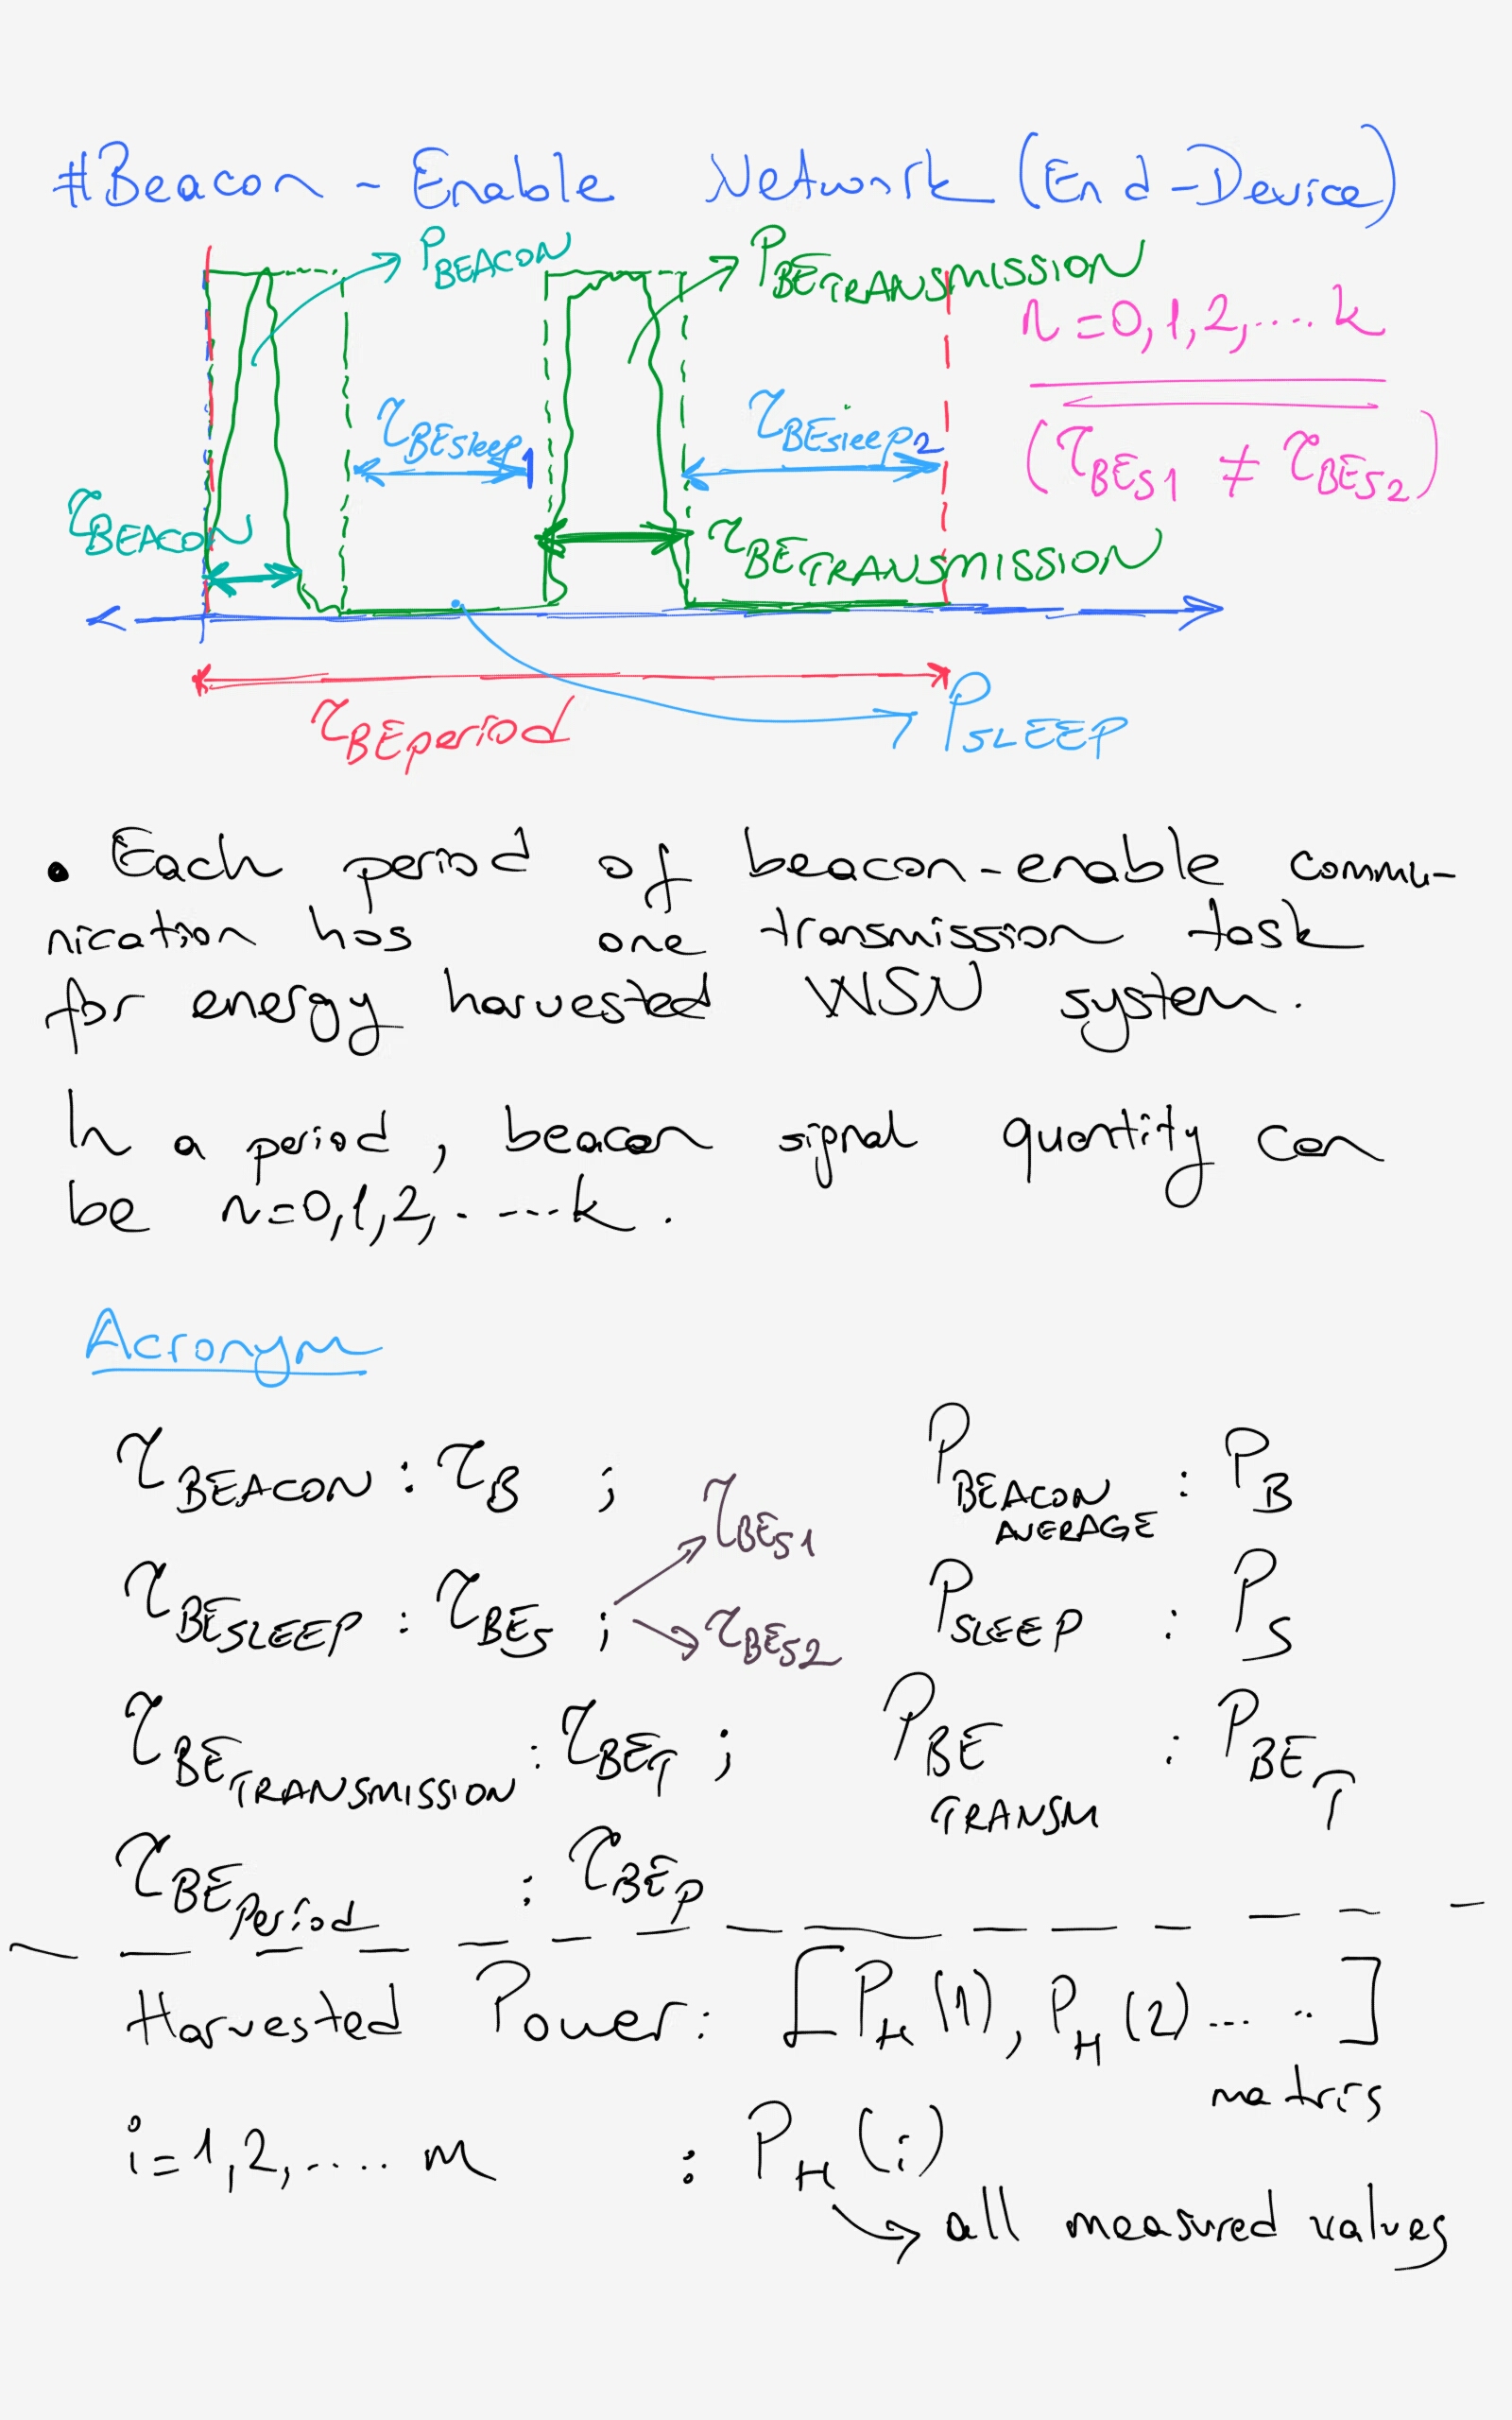 #Beacon - Enable Network (End-Device)
P_BEACON
P_BE_TRANSMISSION
n=0,1,2,....k
τ_BEsleep1
τ_BEsleep2
(τ_BES1 ≠ τ_BES2)
τ_BEACON
τ_BE_TRANSMISSION
τ_BEperiod
P_SLEEP
• Each period of beacon-enable commu-
nication has one transmission task
for energy harvested WSN system.
In a period, beacon signal quantity can
be n=0,1,2,.----k.
Acronym
τ_BEACON : τ_B ; P_BEACON AVERAGE : P_B
τ_BES1
τ_BESLEEP : τ_BES ; P_SLEEP : P_S
τ_BES2
τ_BE_TRANSMISSION : τ_BE_T ; P_BE TRANSM : P_BE_T
τ_BE_Period : τ_BE_P
Harvested Power: [P_H(1), P_H(2)... ..]
matris
i=1,2,.... m : P_H(i)
→ all measured values